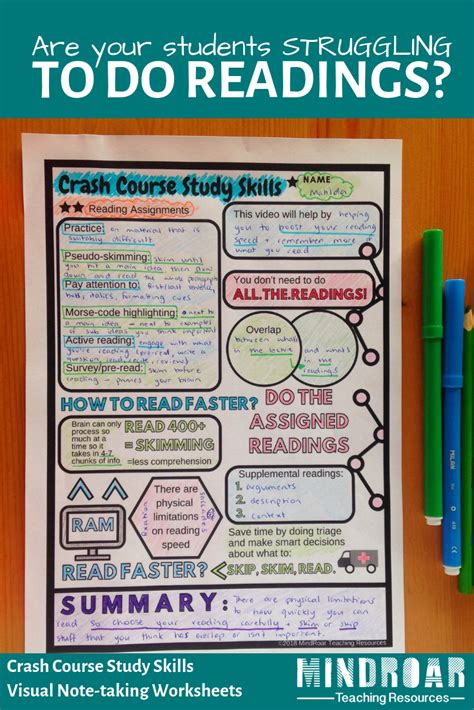 Are your students STRUGGLING
TO DO READINGS?
Crash Course Study Skills
NAME
Matilda
Reading Assignments
Practice: on material that is
suitably difficult
Pseudo-skimming: skim until
you hit a main idea then slow
down and read the whole paragraph
Pay attention to: first/last
bolds, italics, formatting cues
Morse-code highlighting: • next to
a main idea – next to examples
of sub ideas you think important
Active reading: engage with what
you're reading (pre-read, write a
question, read, review)
Survey/pre-read: skim before
reading – primes your brain
This video will help by helping
you to boost your reading
speed + remember more of
what you read
You don't need to do
ALL.THE.READINGS!
Overlap
between what's
in the lecture and what's
in the
readings
DO THE
ASSIGNED
READINGS
HOW TO READ FASTER?
Brain can only
process so
much at a
time so it
takes in 4-7
chunks of info
READ 400+
=SKIMMING
=less comprehension
Supplemental readings:
1. arguments
2. description
3. context
RAM
There are
physical
limitations
on reading
speed
fixation
saccades
Save time by doing triage
and make smart decisions
about what to:
READ FASTER? < SKIP, SKIM, READ.
SUMMARY: There are physical limitations
to how quickly you can
read so choose your reading carefully + skim or skip
stuff that you think has overlap or isn't important.
©2018 MindRoar Teaching Resources
MILAN
610
Crash Course Study Skills
Visual Note-taking Worksheets
MINDROAR
Teaching Resources